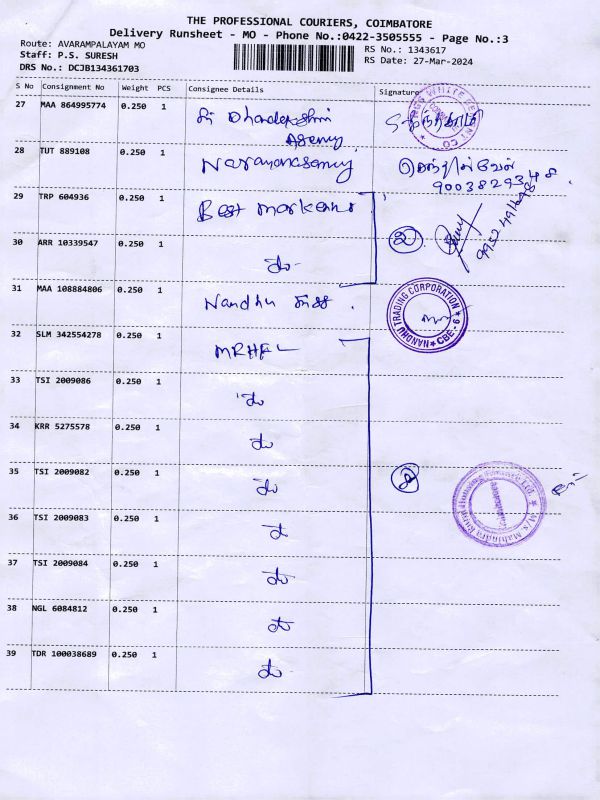 THE PROFESSIONAL COURIERS, COIMBATORE
Delivery Runsheet - MO - Phone No.:0422-3505555 - Page No.:3
Route: AVARAMPALAYAM MO
RS No.: 1343617
Staff: P.S. SURESH
RS Date: 27-Mar-2024
DRS No.: DCJB134361703
S No Consignment No Weight PCS Consignee Details Signature
27 MAA 864995774 0.250 1
Agency
28 TUT 889108 0.250 1 Narayanasamy
செந்தில்வேல்
9003829348
29 TRP 604936 0.250 1 Best
30 ARR 10339547 0.250 1 do
31 MAA 108884806 0.250 1 Nandhu
NANDHU TRADING CORPORATION
CBE - 9
32 SLM 342554278 0.250 1 MRHFL
33 TSI 2009086 0.250 1 do
34 KRR 5275578 0.250 1 do
35 TSI 2009082 0.250 1 do
36 TSI 2009083 0.250 1 do
37 TSI 2009084 0.250 1 do
38 NGL 6084812 0.250 1 do
39 TDR 100038689 0.250 1 do
M/s. Mahindra Rural Housing Finance Ltd.